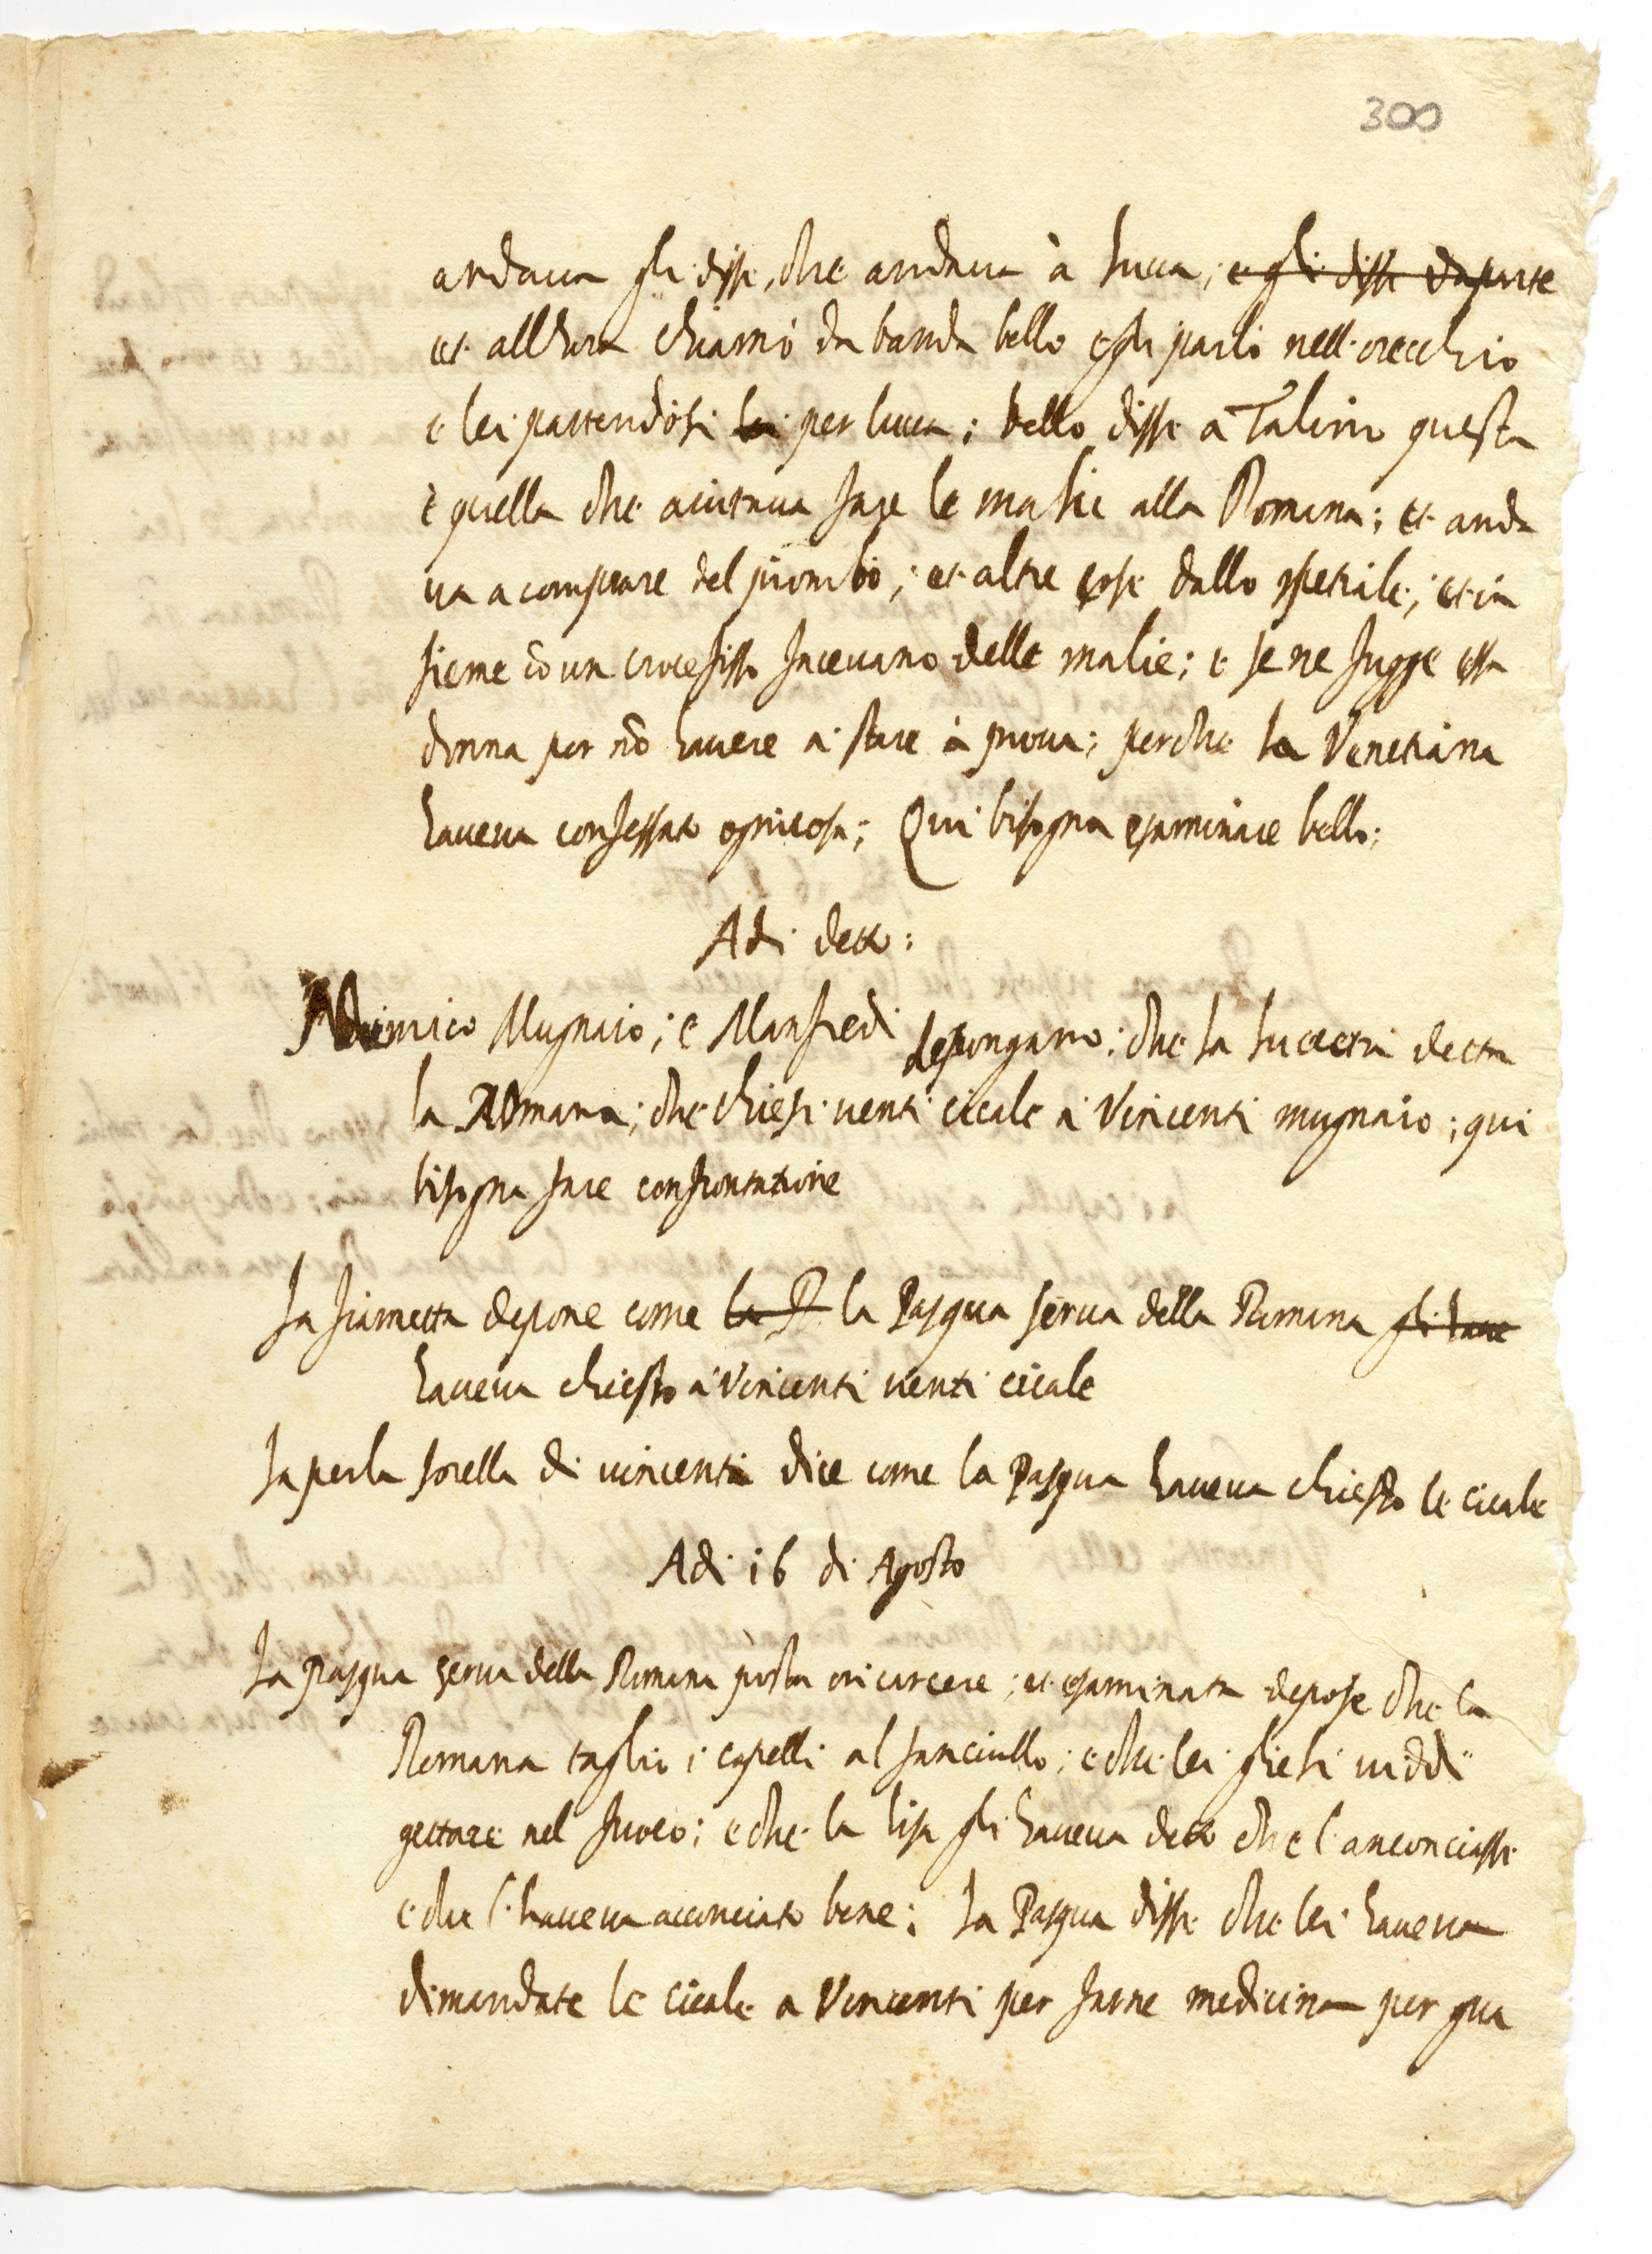 300
andaua gli disse, che andaua à lucca, e gli disse daparte
et allhora chiamò da banda bello egli parlò nell'orecchio
e lei partendosi lei per lucca; bello disse à Talino questa
è quella che aiutaua fare le malie alla Romana; et anda
ua a comprare del piombo; et altre cose dallo spetiale; et in
sieme cō un crocefisso faceuano delle malie; e se ne fugge essa
donna per nō hauere a stare à proua; perche la Venetiana
haueua confessato ognicosa; Qui bisogna esaminare bello;
Adi detto:
mico Mugnaio; e Manfredi depongano; che la lucretia detta
la Romana; che chiese uenti cicale à Vincenti mugnaio; qui
bisogna fare confrontatione
la fiametta depone come la R la Pasqua serua della Romana gli haue
haueua chiesto à Vincenti uenti cicale
la perla sorella di uincenti dice come la Pasqua haueua chiesto le cicale
Adi 16 di Agosto
la Pasqua serua della Romana posta in carcere; et esaminata depose che la
Romana tagliò i capelli al fanciullo; e che lei glieli uiddi
gettare nel fuoco; e che la lisa gli haueua detto che l'anconciasse
e che l'haueua acconciato bene; la Pasqua disse che lei haueua
dimandate le cicale a Vincenti per farne medicina per gua